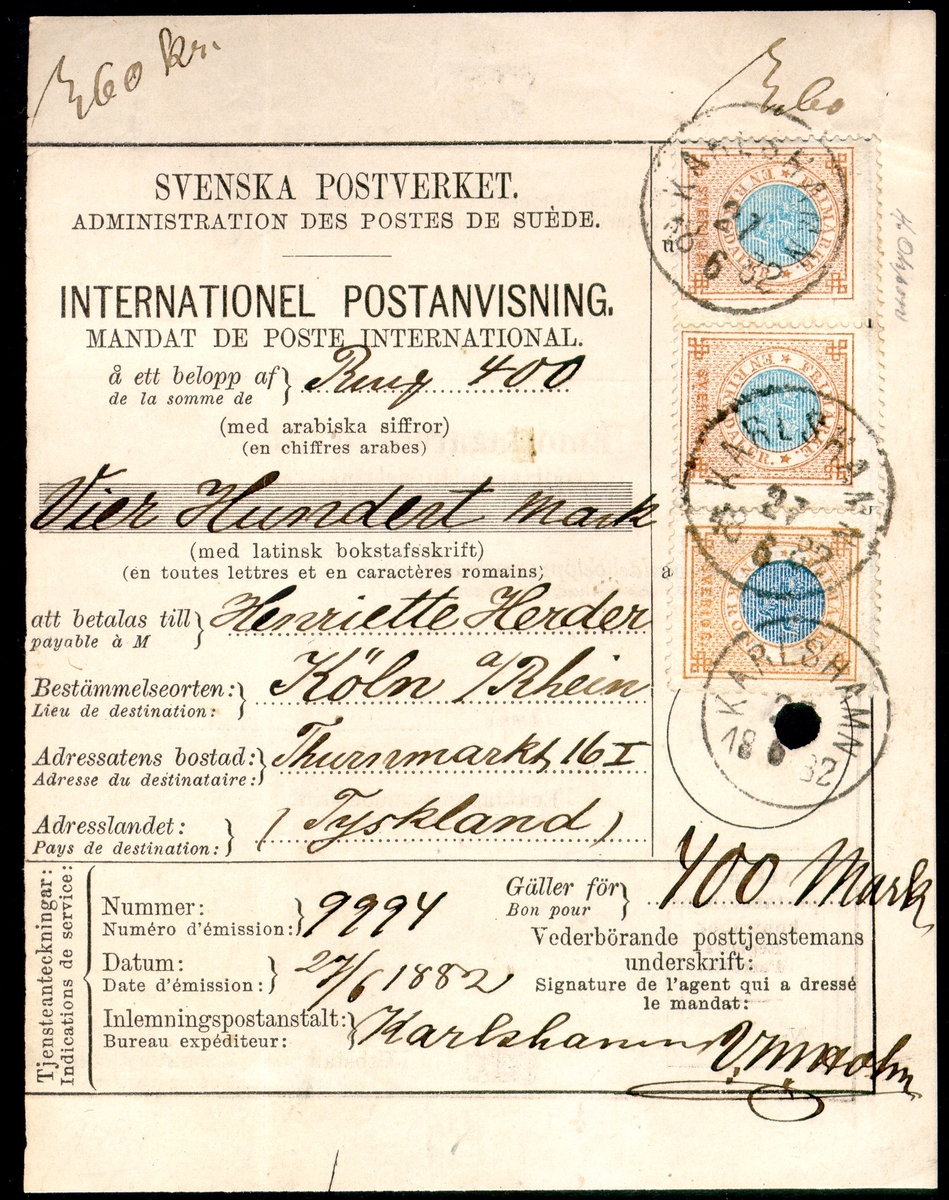 360 kr.
360
SVENSKA POSTVERKET.
ADMINISTRATION DES POSTES DE SUÈDE.
INTERNATIONEL POSTANVISNING.
MANDAT DE POSTE INTERNATIONAL.
å ett belopp af} 400
de la somme de
(med arabiska siffror)
(en chiffres arabes)
Vier Hundert Mark
(med latinsk bokstafsskrift)
(en toutes lettres et en caractères romains;
à
att betalas till} Henriette Herder
payable à M
Bestämmelseorten:} Köln a/Rhein
Lieu de destination:
Adressatens bostad:} Thurnmarkt 16 I
Adresse du destinataire:
Adresslandet:} (Tyskland)
Pays de destination:
Tjensteanteckningar:
Indications de service:
Nummer:} 9994
Numéro d'émission:
Datum:} 27/6 1882
Date d'émission:
Inlemningspostanstalt:} Karlshamn
Bureau expéditeur:
Gäller för} 400 Mark
Bon pour
Vederbörande posttjenstemans
underskrift:
Signature de l'agent qui a dressé
le mandat:
KARLSHAMN
27
6
18 82
KARLSHAMN
27
18 6 82
KARLSHAMN
18 6 82
FRIMÄRKE
EN RIKSDALER
FRIMÄRKE
EN RIKSDALER.